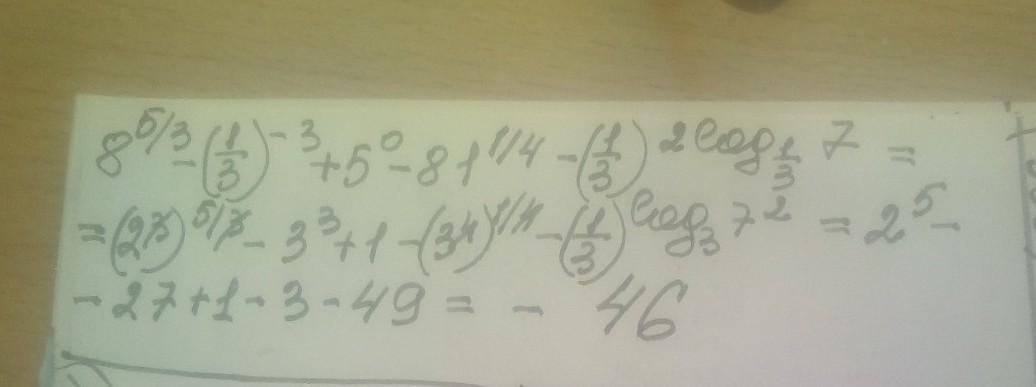 8^{5/3} - (1/3)^{-3} + 5^0 - 81^{1/4} - (1/3)^{2 log_{1/3} 7} =
= (2^3)^{5/3} - 3^3 + 1 - (3^4)^{1/4} - (1/3)^{log_3 7^2} = 2^5 -
- 27 + 1 - 3 - 49 = - 46